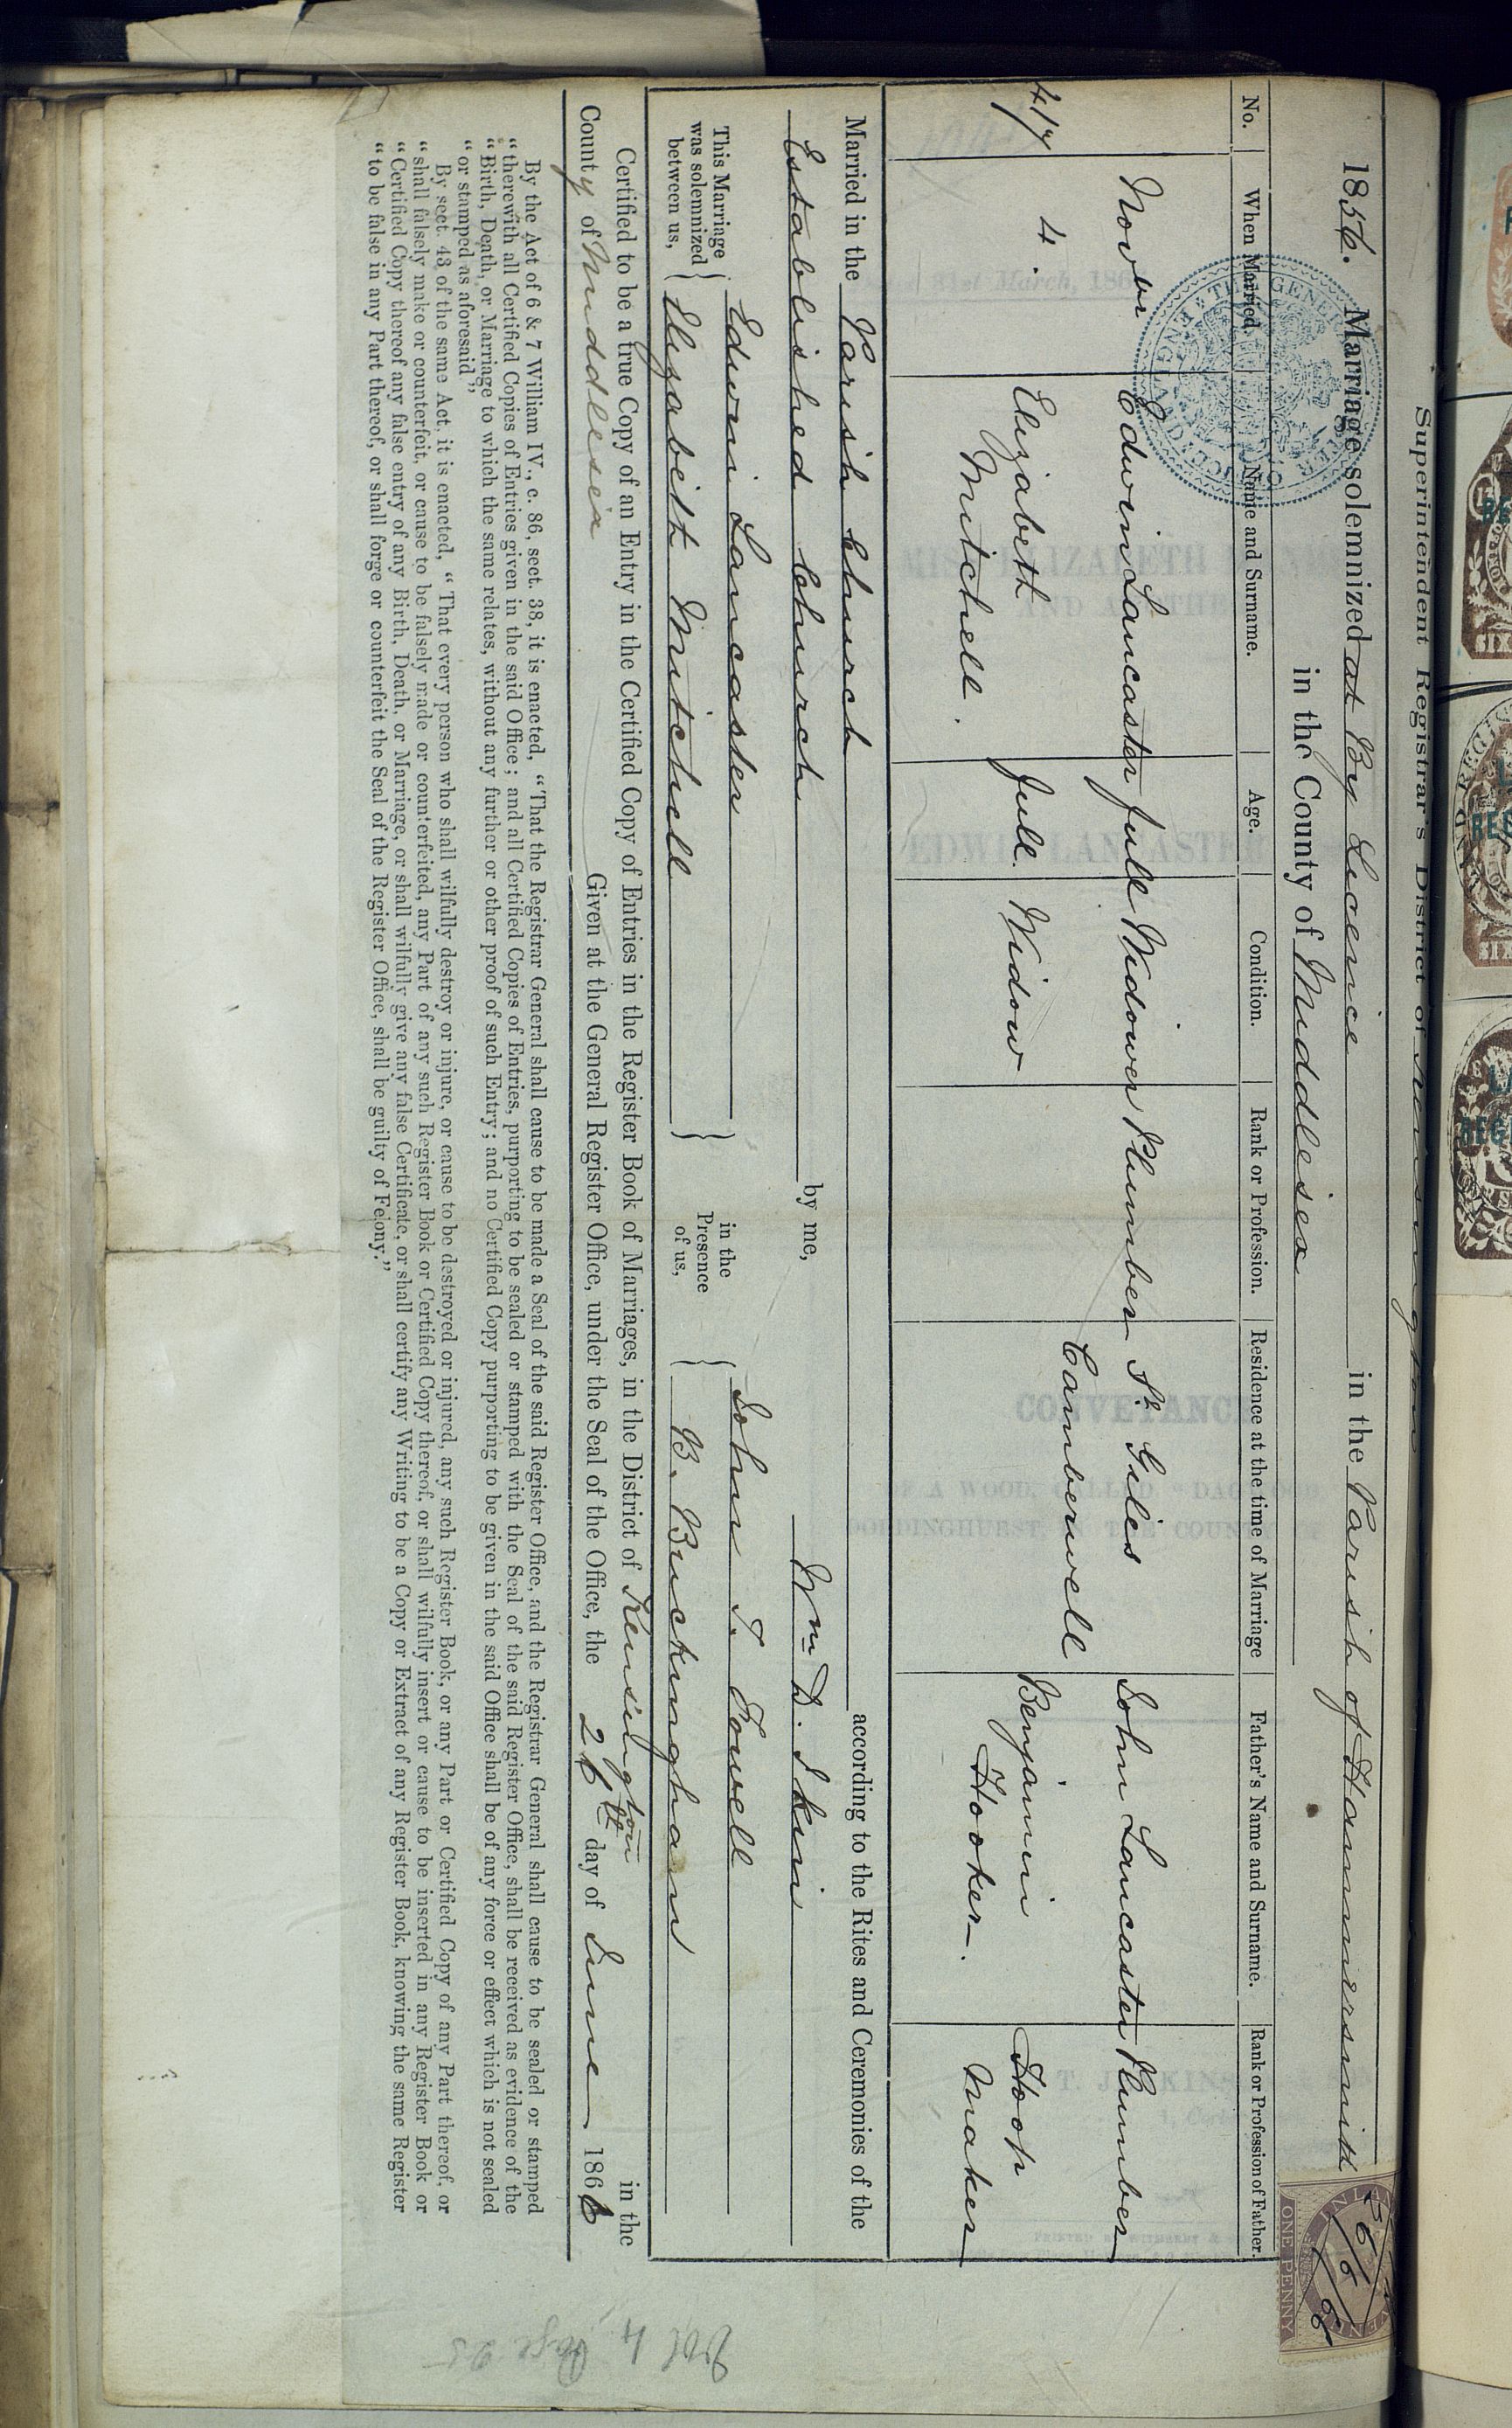 Superintendent Registrar's District of Kensington
1856. Marriage solemnized at By Licence in the Parish of Hammersmith
in the County of Middlesex
No. When Married. Name and Surname. Age. Condition. Rank or Profession. Residence at the time of Marriage Father's Name and Surname. Rank or Profession of Father.
417 Novber 4. Edwin Lancaster full Widower Plumber St Giles Camberwell John Lancaster Plumber
Elizabeth Mitchell. full. Widow Benjamin Hooker. Hoop Maker
Married in the Parish Church according to the Rites and Ceremonies of the
Established Church by me, Wm D.
This Marriage was solemnized between us, Edwin Lancaster in the Presence of us, John T. Towell
Elizabeth Mitchell B. Buckingham
Certified to be a true Copy of an Entry in the Certified Copy of Entries in the Register Book of Marriages, in the District of Kensington in the
County of Middlesex Given at the General Register Office, under the Seal of the Office, the 26th day of June 1866
By the Act of 6 & 7 William IV., c. 86, sect. 38, it is enacted, "That the Registrar General shall cause to be made a Seal of the said Register Office, and the Registrar General shall cause to be sealed or stamped
"therewith all Certified Copies of Entries given in the said Office; and all Certified Copies of Entries, purporting to be sealed or stamped with the Seal of the said Register Office, shall be received as evidence of the
"Birth, Death, or Marriage to which the same relates, without any further or other proof of such Entry; and no Certified Copy purporting to be given in the said Office shall be of any force or effect which is not sealed
"or stamped as aforesaid."
By sect. 43 of the same Act, it is enacted, "That every person who shall wilfully destroy or injure, or cause to be destroyed or injured, any such Register Book, or any Part or Certified Copy of any Part thereof, or
"shall falsely make or counterfeit, or cause to be falsely made or counterfeited, any Part of any such Register Book or Certified Copy thereof, or shall wilfully insert or cause to be inserted in any Register Book or
"Certified Copy thereof any false entry of any Birth, Death, or Marriage, or shall wilfully give any false Certificate, or shall certify any Writing to be a Copy or Extract of any Register Book, knowing the same Register
"to be false in any Part thereof, or shall forge or counterfeit the Seal of the Register Office, shall be guilty of Felony."
ONE PENNY
26/6/66
Vol 4. Page 25